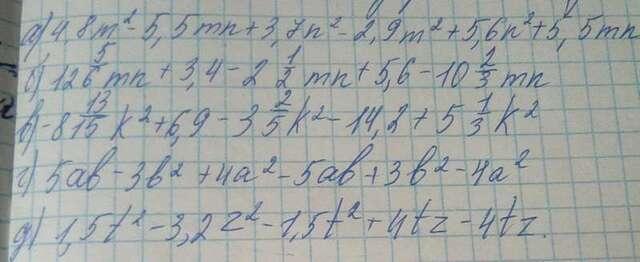 а) 4,8m² - 5,5mn + 3,7n² - 2,9m² + 5,6n² + 5,5mn
б) 12 5/6 mn + 3,4 - 2 1/2 mn + 5,6 - 10 2/3 mn
в) -8 13/15 k² + 6,9 - 3 2/5 k² - 14,2 + 5 1/3 k²
г) 5ab - 3b² + 4a² - 5ab + 3b² - 4a²
д) 1,5t² - 3,2z² - 1,5t² + 4tz - 4tz.